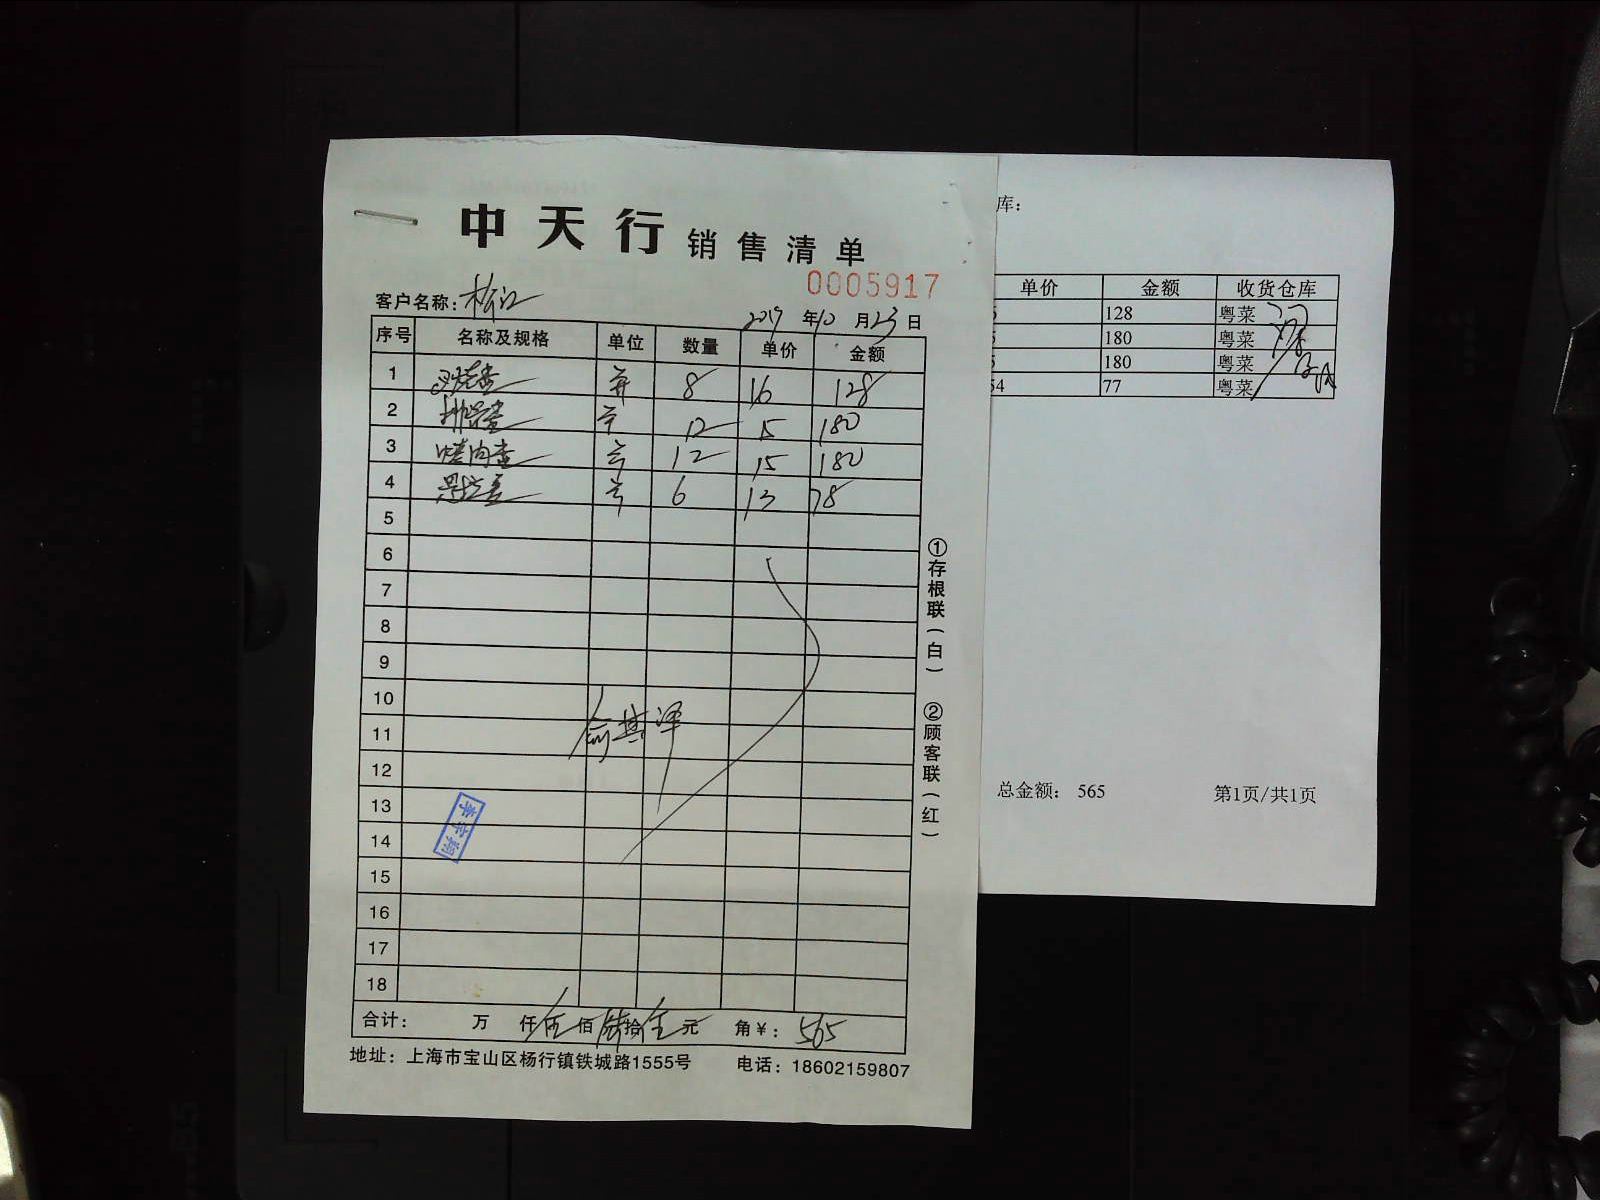 中天行 销售清单
0005917
客户名称：松江
2019年10月23日
序号 名称及规格 单位 数量 单价 金额
1 叉烧酱 8 16 128
2 排骨酱 12 15 180
3 烤肉酱 12 15 180
4 6 13 78
5
6
7
8
9
10
11
12
13
14
15
16
17
18
李宇翔
合计： 万 仟伍佰陆拾伍元 角￥：565
地址：上海市宝山区杨行镇铁城路1555号 电话：18602159807
①存根联（白）
②顾客联（红）
库：
单价 金额 收货仓库
128 粤菜
180 粤菜
180 粤菜
54 77 粤菜
总金额： 565 第1页/共1页